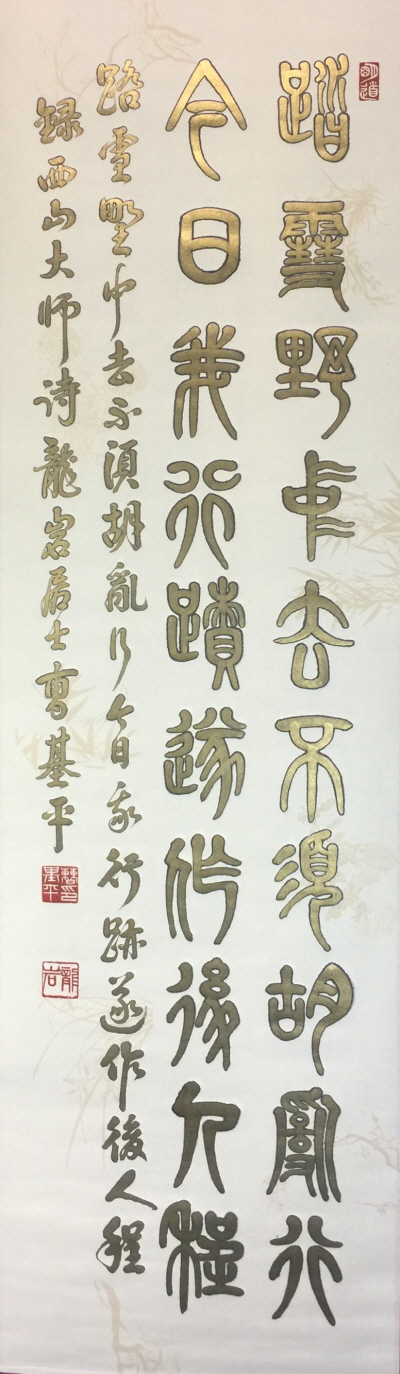 明道
踏雪野中去不須胡亂行
今日我行蹟遂作後人程
踏雪野中去不須胡亂行今日我行跡遂作後人程
録西山大师诗龍岩居士曹基平
曹印基平
龍岩